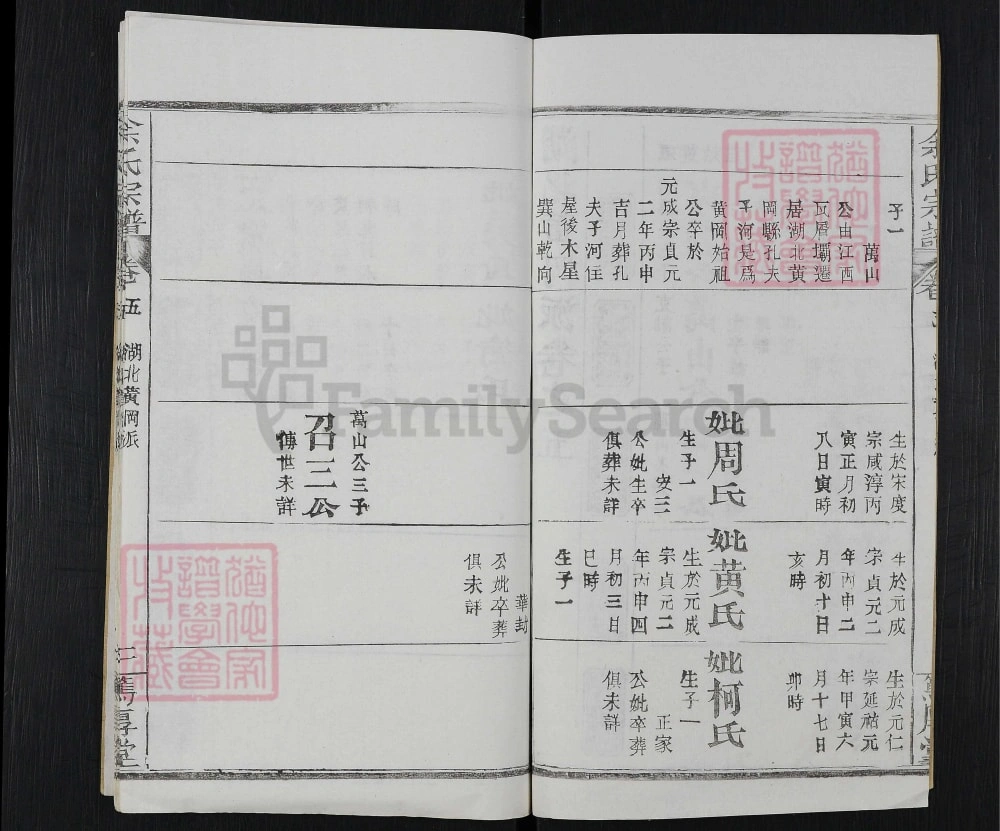 余氏宗譜
子一
萬山
公由江西
瓦屑壩遷
居湖北黃
岡縣孔夫
子河是爲
黃岡始祖
公卒於
元成宗貞元
二年丙申
吉月葬孔
夫子河住
屋後木星
巽山乾向
生於宋度
宗咸淳丙
寅正月初
八日寅時
妣周氏
生子一
安三
公妣生卒
俱葬未詳
生於元成
宗貞元二
年丙申二
月初十日
亥時
妣黃氏
生於元成
宗貞元二
年丙申四
月初三日
巳時
生子一
生於元仁
宗延祐元
年甲寅六
月十七日
卯時
妣柯氏
生子一
正家
公妣卒葬
俱未詳
萬山公三子
召三公
傳世未詳
華封
公妣卒葬
俱未詳
余氏宗譜
卷五
湖北黃岡派
二
篤厚堂
猶他家
譜學會
收藏
猶他家
譜學會
收藏
FamilySearch